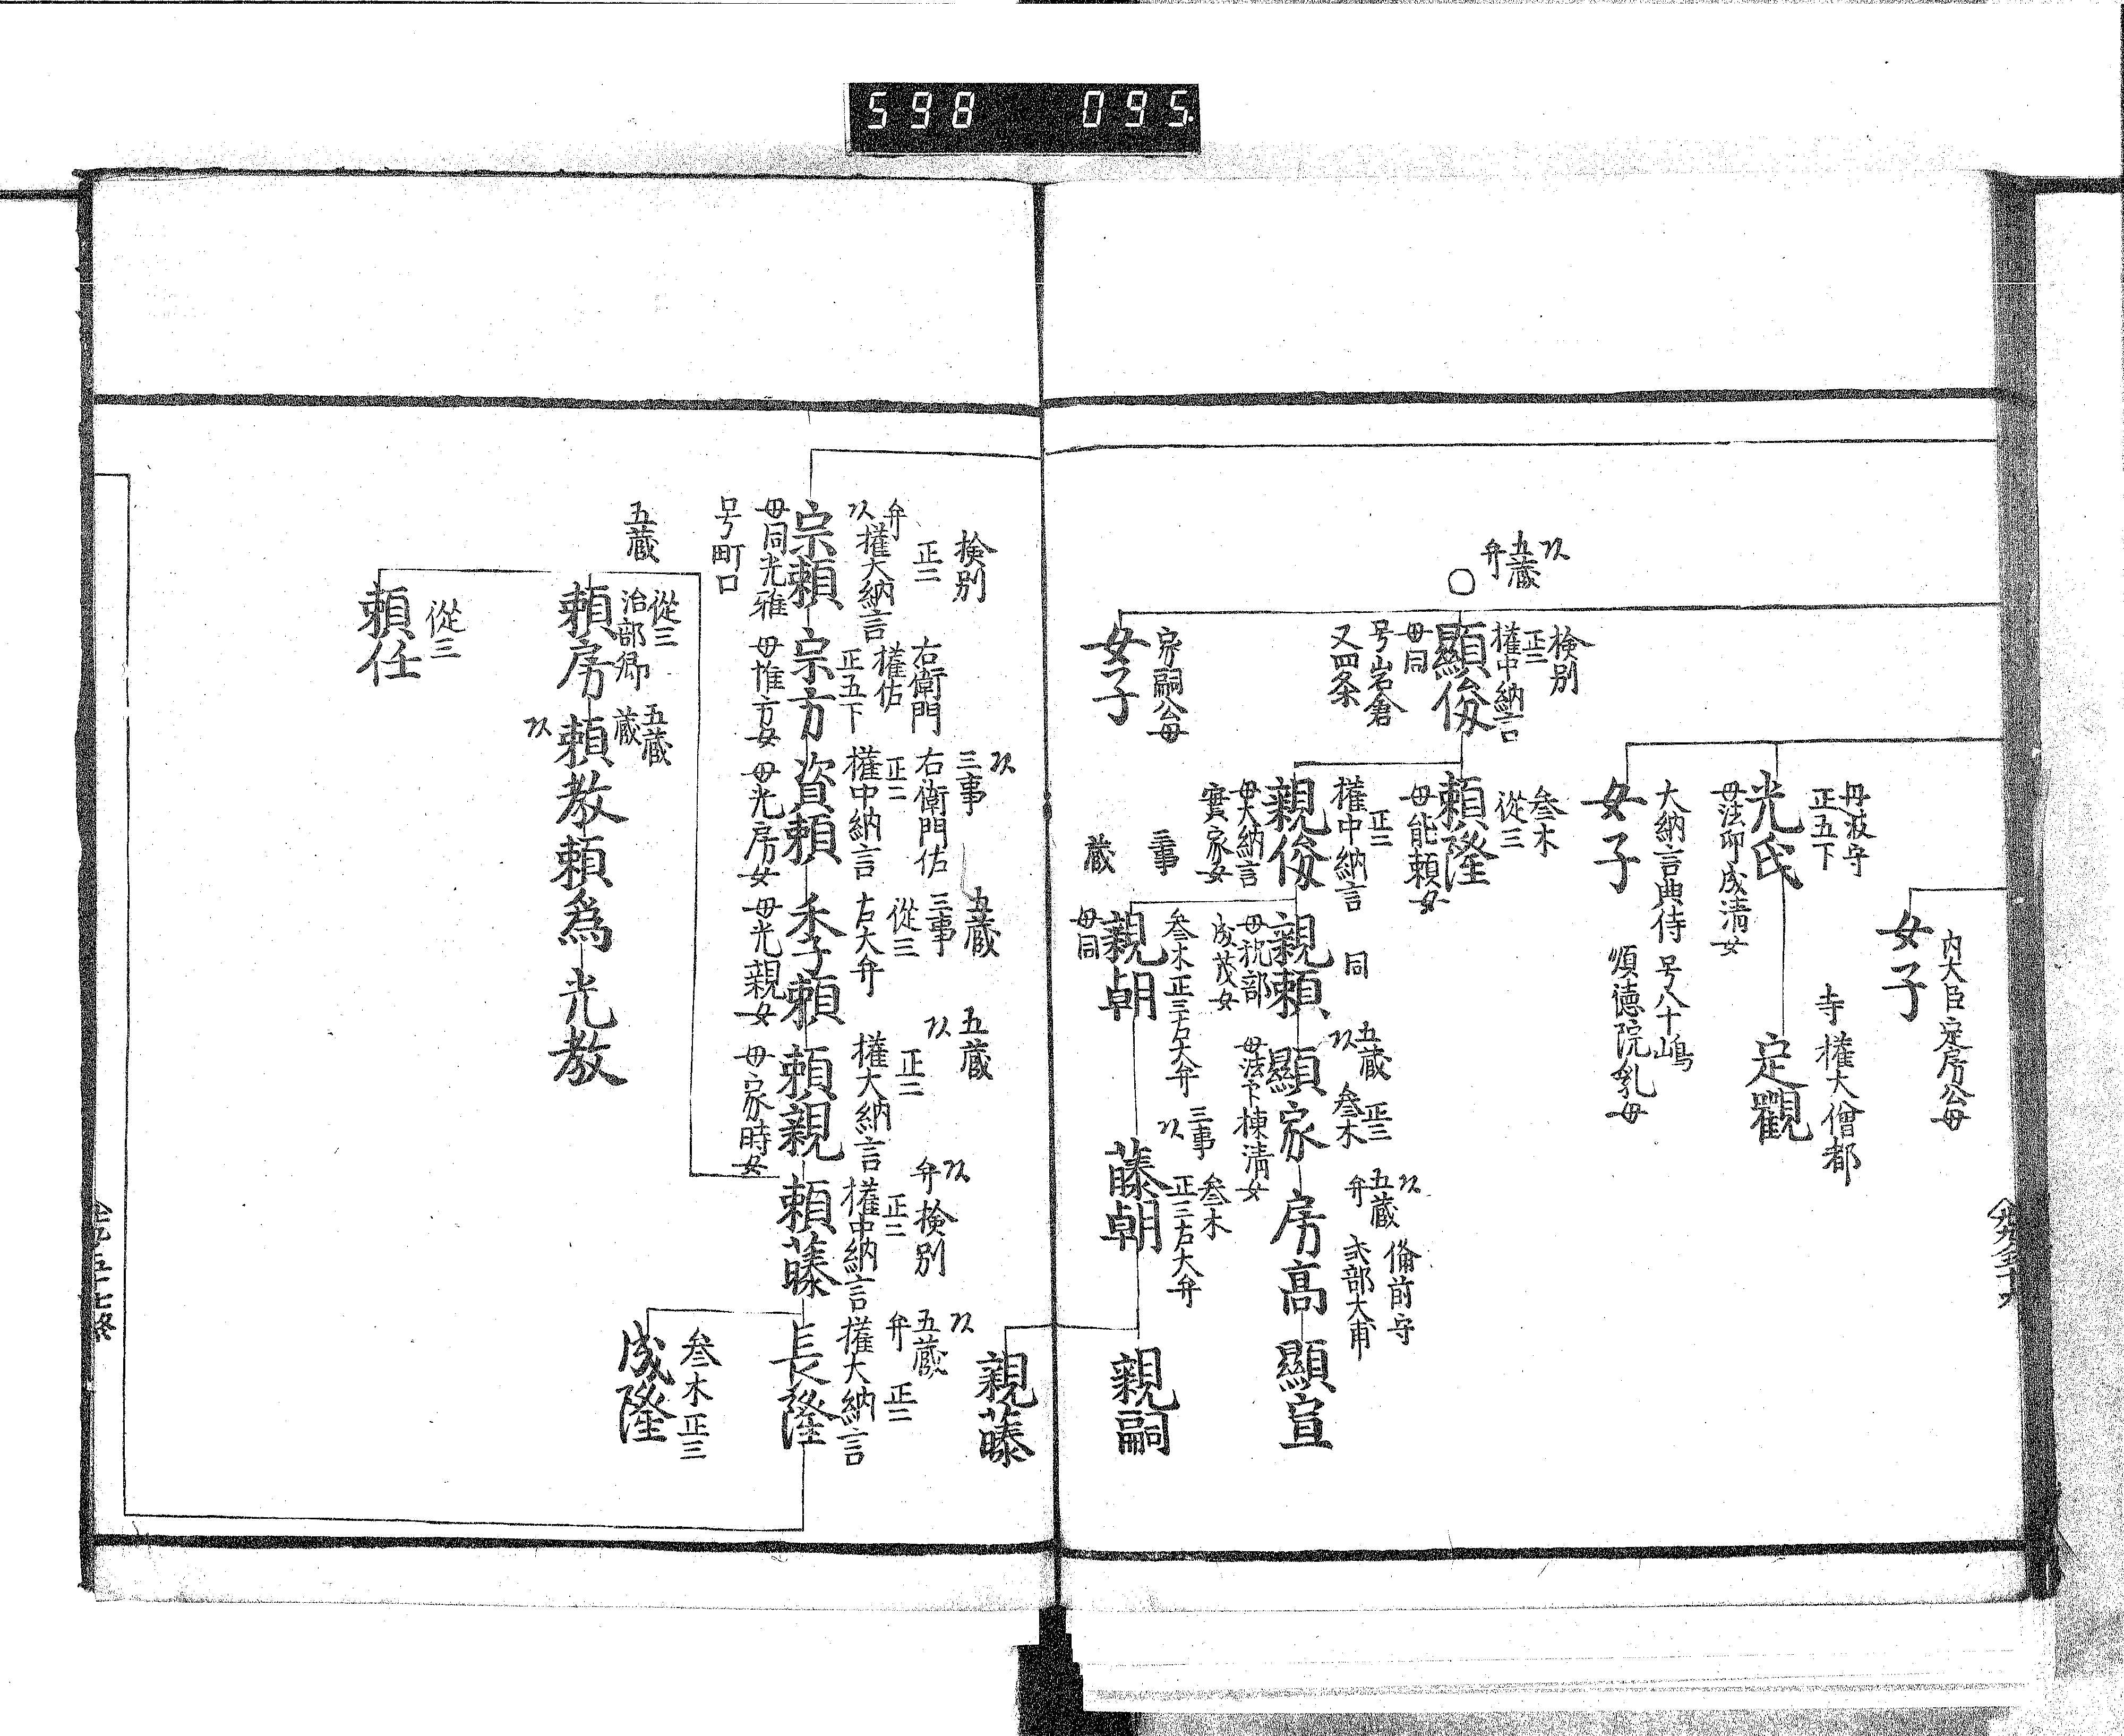 598 095
内大臣定房公母
女子
丹波守
正五下
光氏
母法印成清女
寺権大僧都
定觀
大納言典侍 号八十嶋
順徳院乳母
女子
五蔵
弁
検別
正二
権中納言
顯俊
母同
号岩倉
又四条
参木
從三
頼隆
母能頼女
正二
権中納言
親俊
母大納言
實家女
同
親頼
母祝部
成茂女
五蔵
正三
参木
顯家
母法下棟清女
五蔵
弁
備前守
式部大甫
房高
顯宣
三事
蔵
参木正三右大弁
親朝
母同
三事
参木
正三右大弁
藤朝
親嗣
親藤
家嗣公母
女子
検別
正二
弁
権大納言
宗頼
母同光雅
号町口
右衛門
権佐
正五下
宗方
母惟方女
三事
右衛門佐
正二
権中納言
資頼
母光房女
五蔵
三事
從三
右大弁
季頼
母光親女
五蔵
正二
権大納言
頼親
母家時女
弁
検別
正二
権中納言
頼藤
五蔵
弁
正二
権大納言
長隆
参木正三
成隆
五蔵
從三
治部卿
頼房
五蔵
蔵
頼教
頼為
光教
從三
頼任